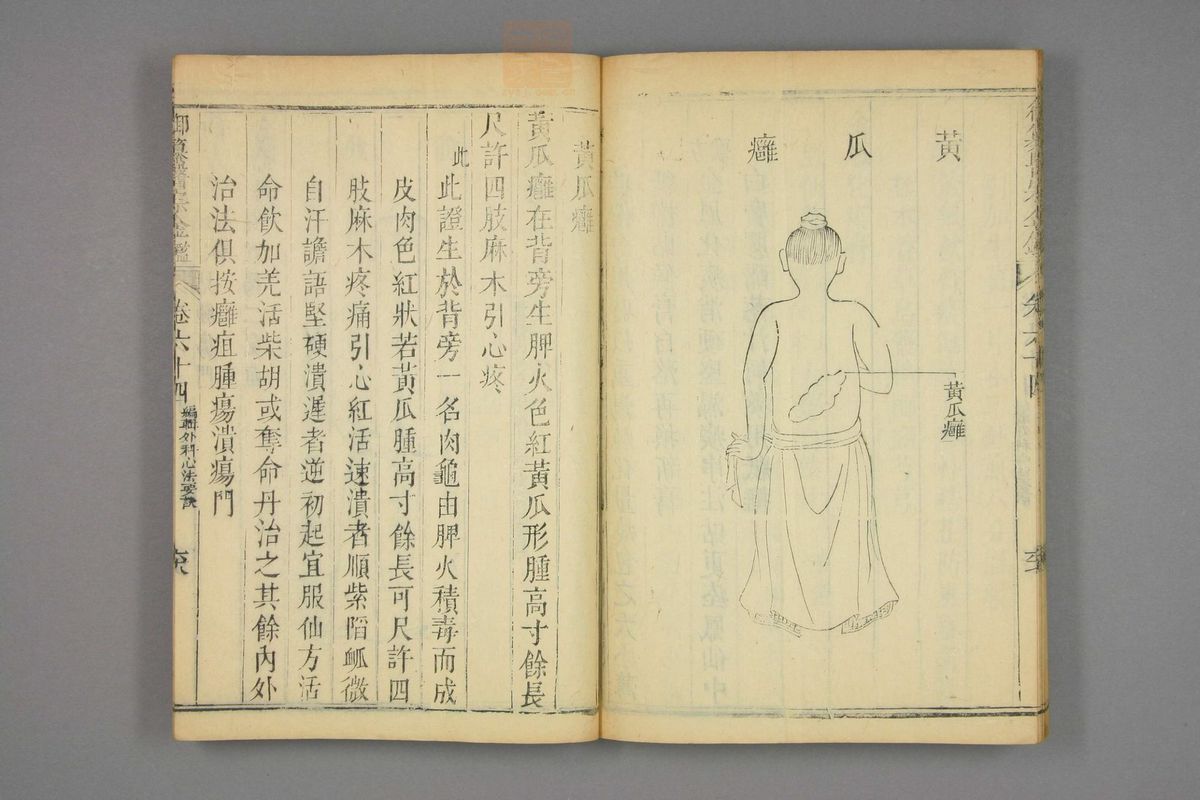 黃瓜癰
黃瓜癰
卷六十四
黃瓜癰
黃瓜癰在背旁生脾火色紅黃瓜形腫高寸餘長
尺許四肢麻木引心疼
此證生於背旁一名肉龜由脾火積毒而成
皮肉色紅狀若黃瓜腫高寸餘長可尺許四
肢麻木疼痛引心紅活速潰者順紫陷衃微
自汗譫語堅硬潰遲者逆初起宜服仙方活
命飲加羌活柴胡或奪命丹治之其餘內外
治法俱按癰疽腫瘍潰瘍門
御纂醫宗金鑑 卷六十四 編輯外科心法要訣